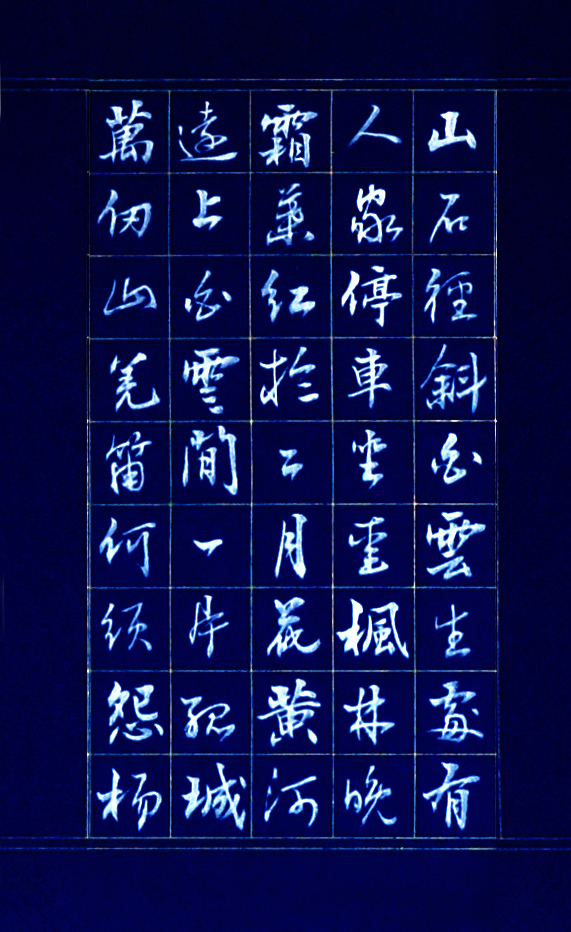 山石徑斜白雲生處有
人家停車坐愛楓林晚
霜葉紅於二月花黃河
遠上白雲間一片孤城
萬仞山羌笛何須怨杨